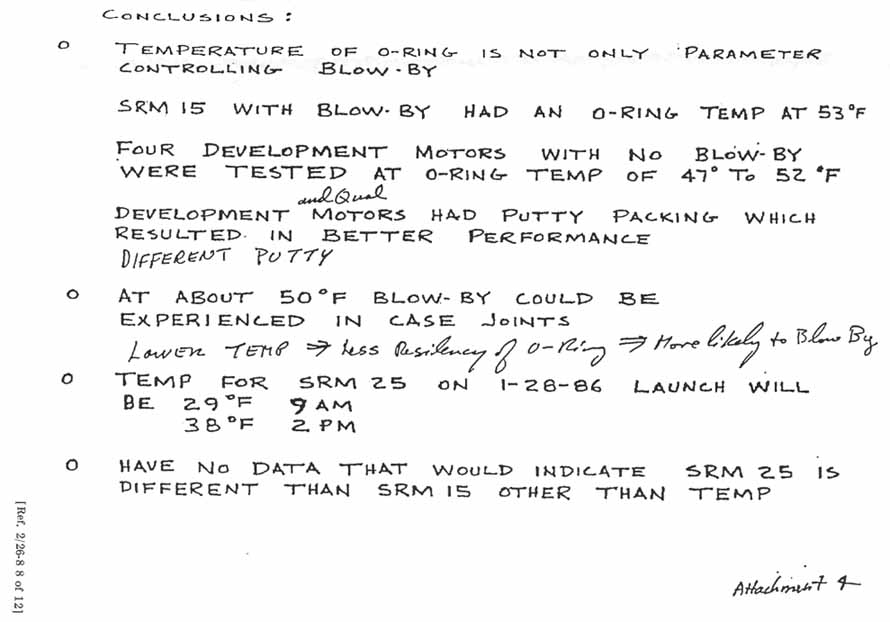 CONCLUSIONS :
o TEMPERATURE OF O-RING IS NOT ONLY PARAMETER
CONTROLLING BLOW-BY
SRM 15 WITH BLOW-BY HAD AN O-RING TEMP AT 53°F
FOUR DEVELOPMENT MOTORS WITH NO BLOW-BY
WERE TESTED AT O-RING TEMP OF 47° TO 52°F
and Qual
DEVELOPMENT MOTORS HAD PUTTY PACKING WHICH
RESULTED IN BETTER PERFORMANCE
DIFFERENT PUTTY
o AT ABOUT 50°F BLOW-BY COULD BE
EXPERIENCED IN CASE JOINTS
LOWER TEMP ⇒ Less Resiliency of O-Ring ⇒ More likely to Blow By
o TEMP FOR SRM 25 ON 1-28-86 LAUNCH WILL
BE 29°F 9 AM
38°F 2 PM
o HAVE NO DATA THAT WOULD INDICATE SRM 25 IS
DIFFERENT THAN SRM 15 OTHER THAN TEMP
[Ref. 2/26-8 8 of 12]
Attachment 4